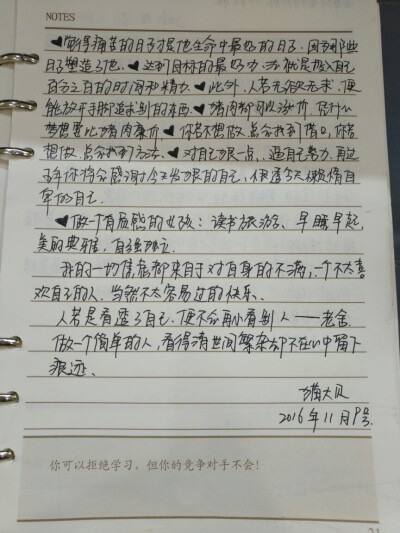 NOTES
♥懂得痛苦的日子才是他生命中最好的日子,因为那些
日子塑造了他。♥达到目标的最好办法就是投入自己
百分之百的时间和精力。♥此外,人若无欲无求,便
能放开手脚追求别的东西。♥猪肉都可以涨价,凭什么
梦想要比猪肉廉价♥你若不想做,总会找到借口,你若
想做,总会找到方法。♥对自己狠一点,逼自己努力,再过
五年你将会感谢今天发狠的自己,恨透今天懒惰自
卑的自己。
♥做一个有质感的女孩:读书旅游、早睡早起,
美丽典雅,自强独立。
我的一切焦虑都来自于对自身的不满,一个不太喜
欢自己的人,当然不太容易过的快乐。
人若是看透了自己,便不会再小看别人——老舍
做一个简单的人,看得清世间繁杂却不在心中留下
痕迹。
猫大贝
2016年11月9号
你可以拒绝学习,但你的竞争对手不会!